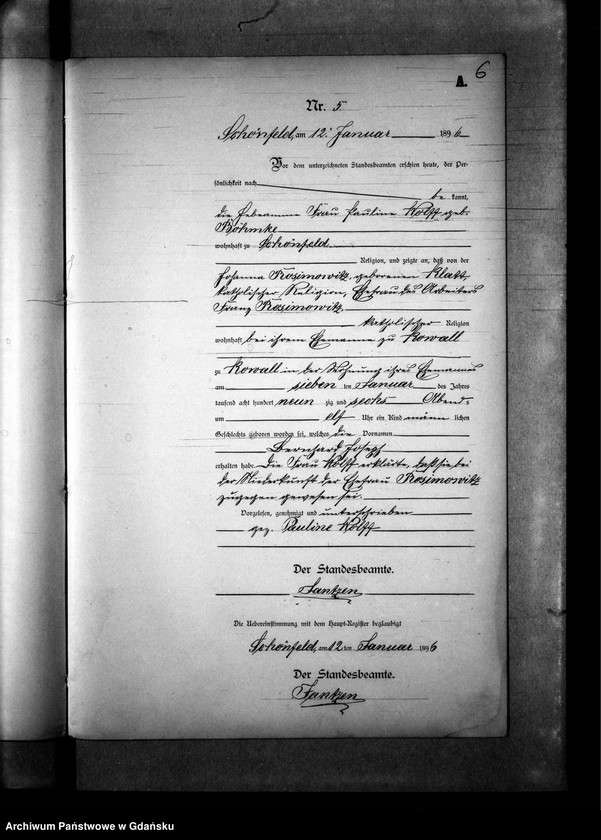 6
A.
Nr. 5
Schönfeld, am 12. Januar 1896
Vor dem unterzeichneten Standesbeamten erschien heute, der Per-
sönlichkeit nach
be kannt,
die Hebeamme Frau Pauline Kolff geb.
Böhmke
wohnhaft zu Schönfeld
Religion, und zeigte an, daß von der
Johanna Rosimowitz, geborenen Klatt,
katholischer Religion, Ehefrau des Arbeiters
Franz Rosimowitz,
katholischer Religion
wohnhaft bei ihrem Ehemanne zu Kowall
zu Kowall in der Wohnung ihres Ehemannes
am sieben ten Januar des Jahres
tausend acht hundert neun zig und sechs Abends
um elf Uhr ein Kind männ lichen
Geschlechts geboren worden sei, welches die Vornamen
Bernhard Joseph
erhalten habe. Die Frau Kolff erklärte, daß sie bei
der Niederkunft der Ehefrau Rosimowitz
zugegen gewesen sei.
Vorgelesen, genehmigt und unterschrieben
gez. Pauline Kolff
Der Standesbeamte.
Jantzen
Die Uebereinstimmung mit dem Haupt-Register beglaubigt
Schönfeld, am 12 ten Januar 1896
Der Standesbeamte.
Jantzen
Archiwum Państwowe w Gdańsku